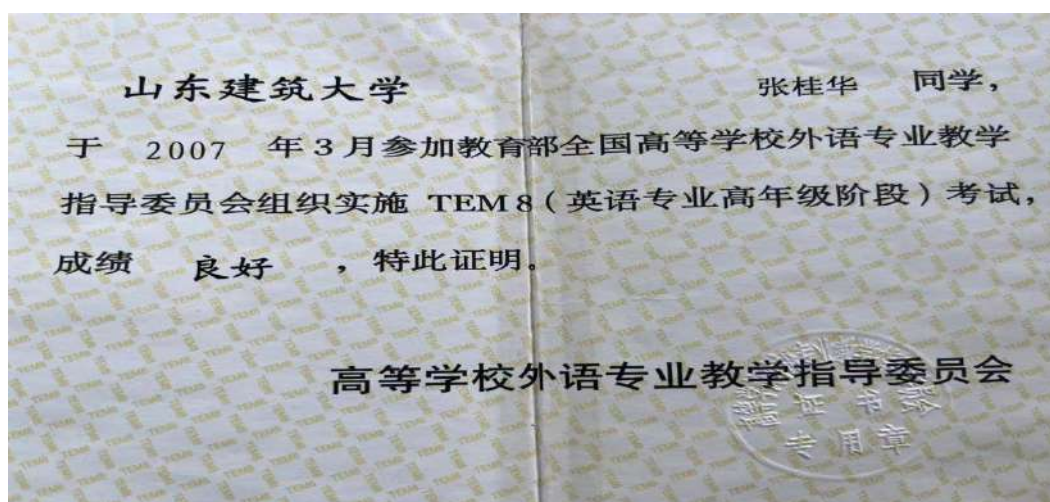 山东建筑大学 张桂华 同学,
于 2007 年3月参加教育部全国高等学校外语专业教学
指导委员会组织实施 TEM8(英语专业高年级阶段)考试,
成绩 良好 ,特此证明。
高等学校外语专业教学指导委员会
证书
专用章